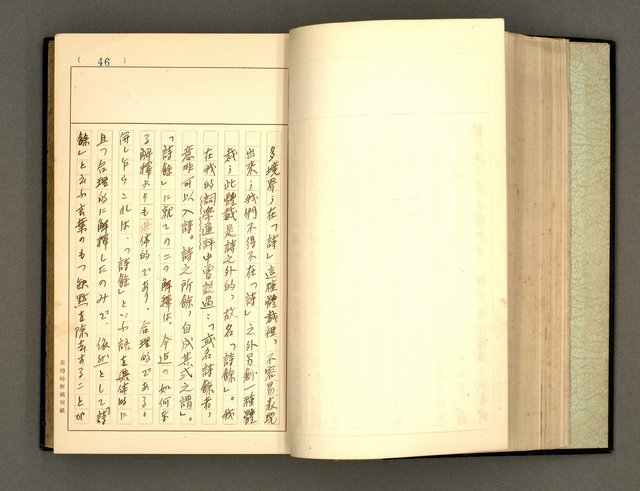 ( 46 )
多境界；在「詩」這種體裁裡，不容易表現
出來；我們不得不在「詩」之外另創一種體
裁；此體裁是詩之外的，故名「詩餘」。我
在我的詞學通評中曾説過：「或名詩餘者，
意非可以入詩。詩之所餘，自成其式之謂」。
「詩餘」に就てのこの解釋は、今迄の如何な
る解釋よりも具体的であり、合理的である。
併しながらこれは、「詩餘」といふ語を具体的に
且つ合理的に解釋したのみで、依然として「詩
餘」と云ふ言葉のもつ欠點を除去することが
黃得時原稿用紙